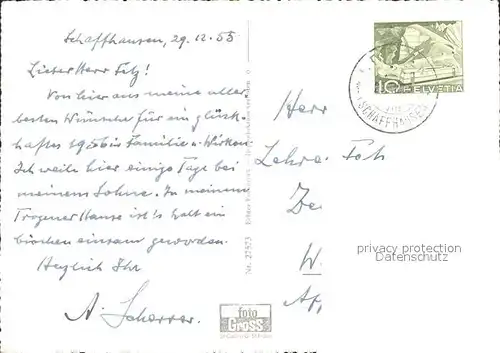 Schaffhausen, 29.12.55
Lieber Herr Felz!
Von hier aus meine aller-
besten Wünsche für ein glück-
haftes 1956 in Familie u. Wirken.
Ich weile hier einige Tage bei
meinem Sohne. In meinem
Trogener Hause ist's halt ein
bischen einsam geworden.
Herzlich Ihr
A. Scherrer.
Nr. 27573
foto
Gross
HELVETIA
SCHAFFHAUSEN
Herr
privacy protection
Datenschutz
W